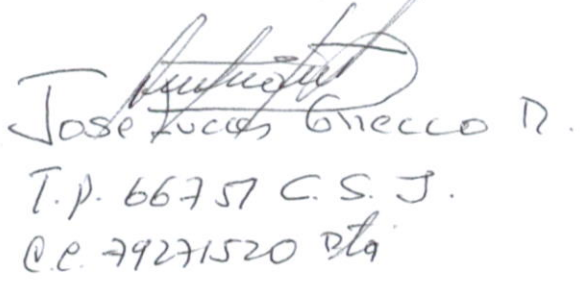 Jose Lucas Grecco R.
T.P. 66751 C.S.J.
C.C. 79271520 Bta